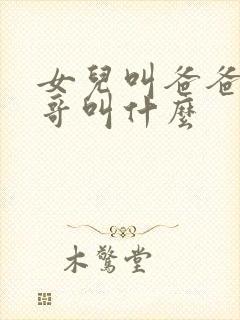 女兒叫爸爸
哥叫什麼
木驚堂